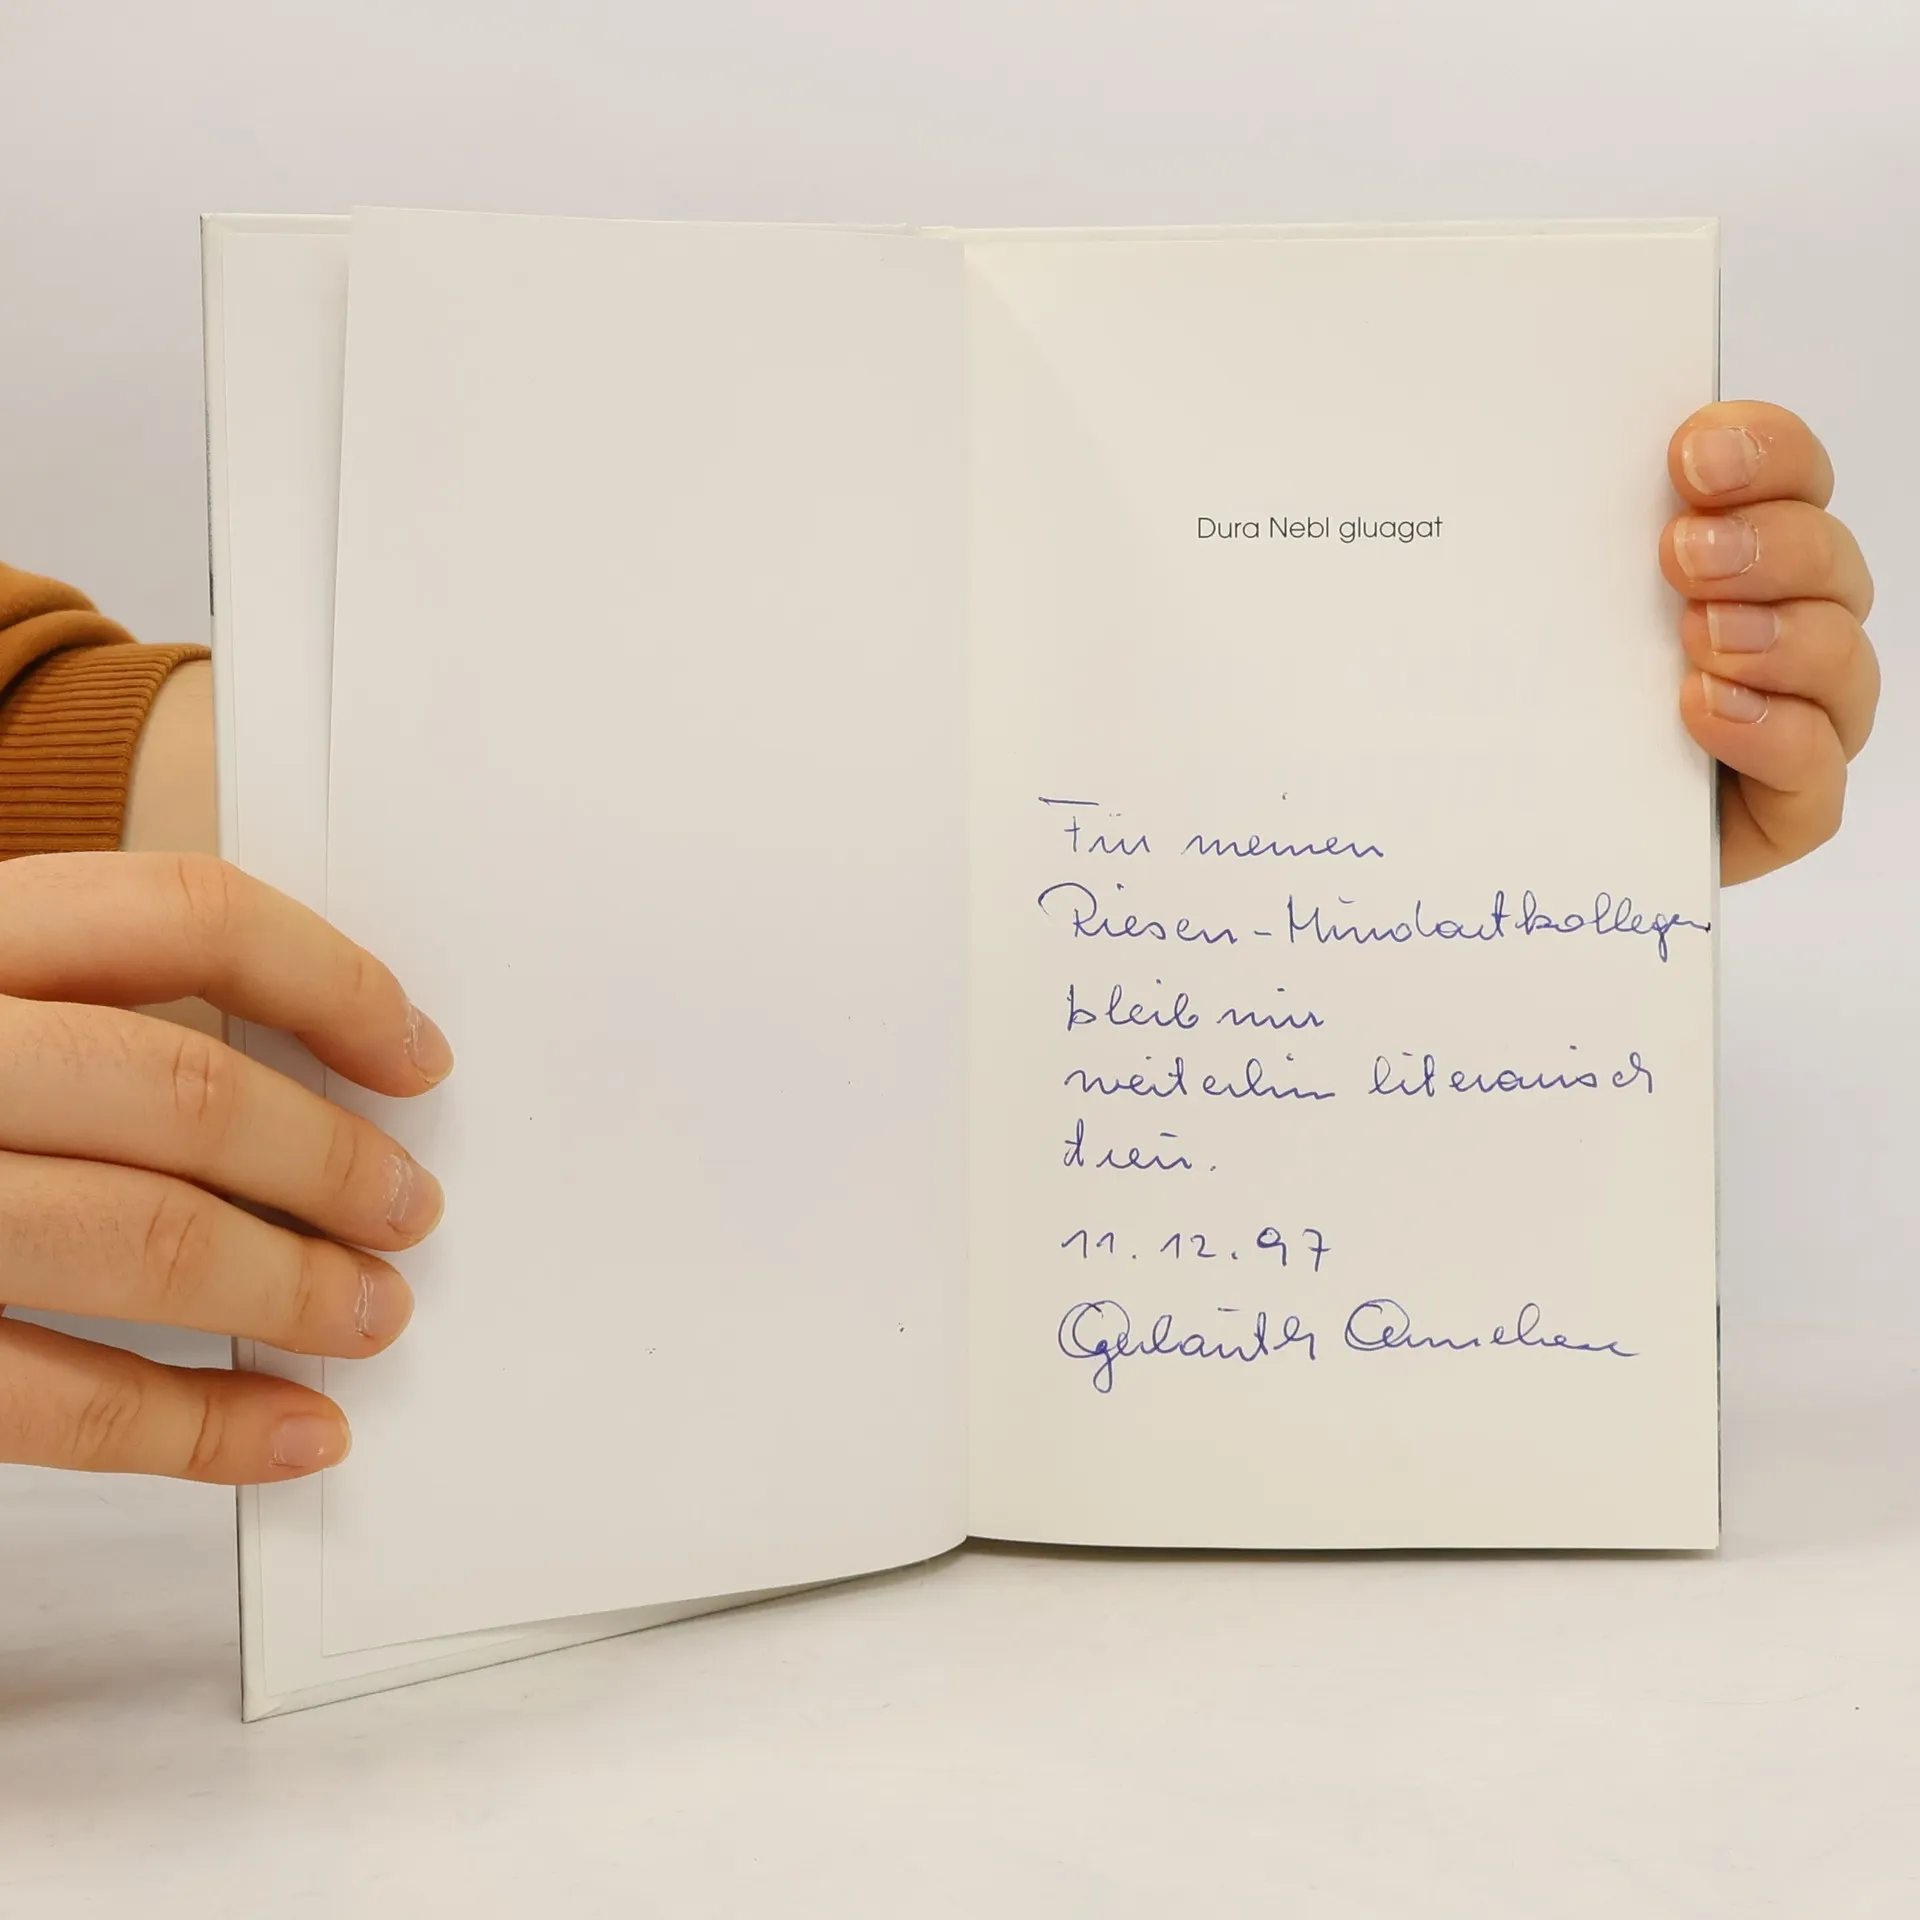 Dura Nebl gluagat
Für meinen
Riesen-Mundartkollegen
bleib mir
weiterhin literarisch
treu.
11.12.97